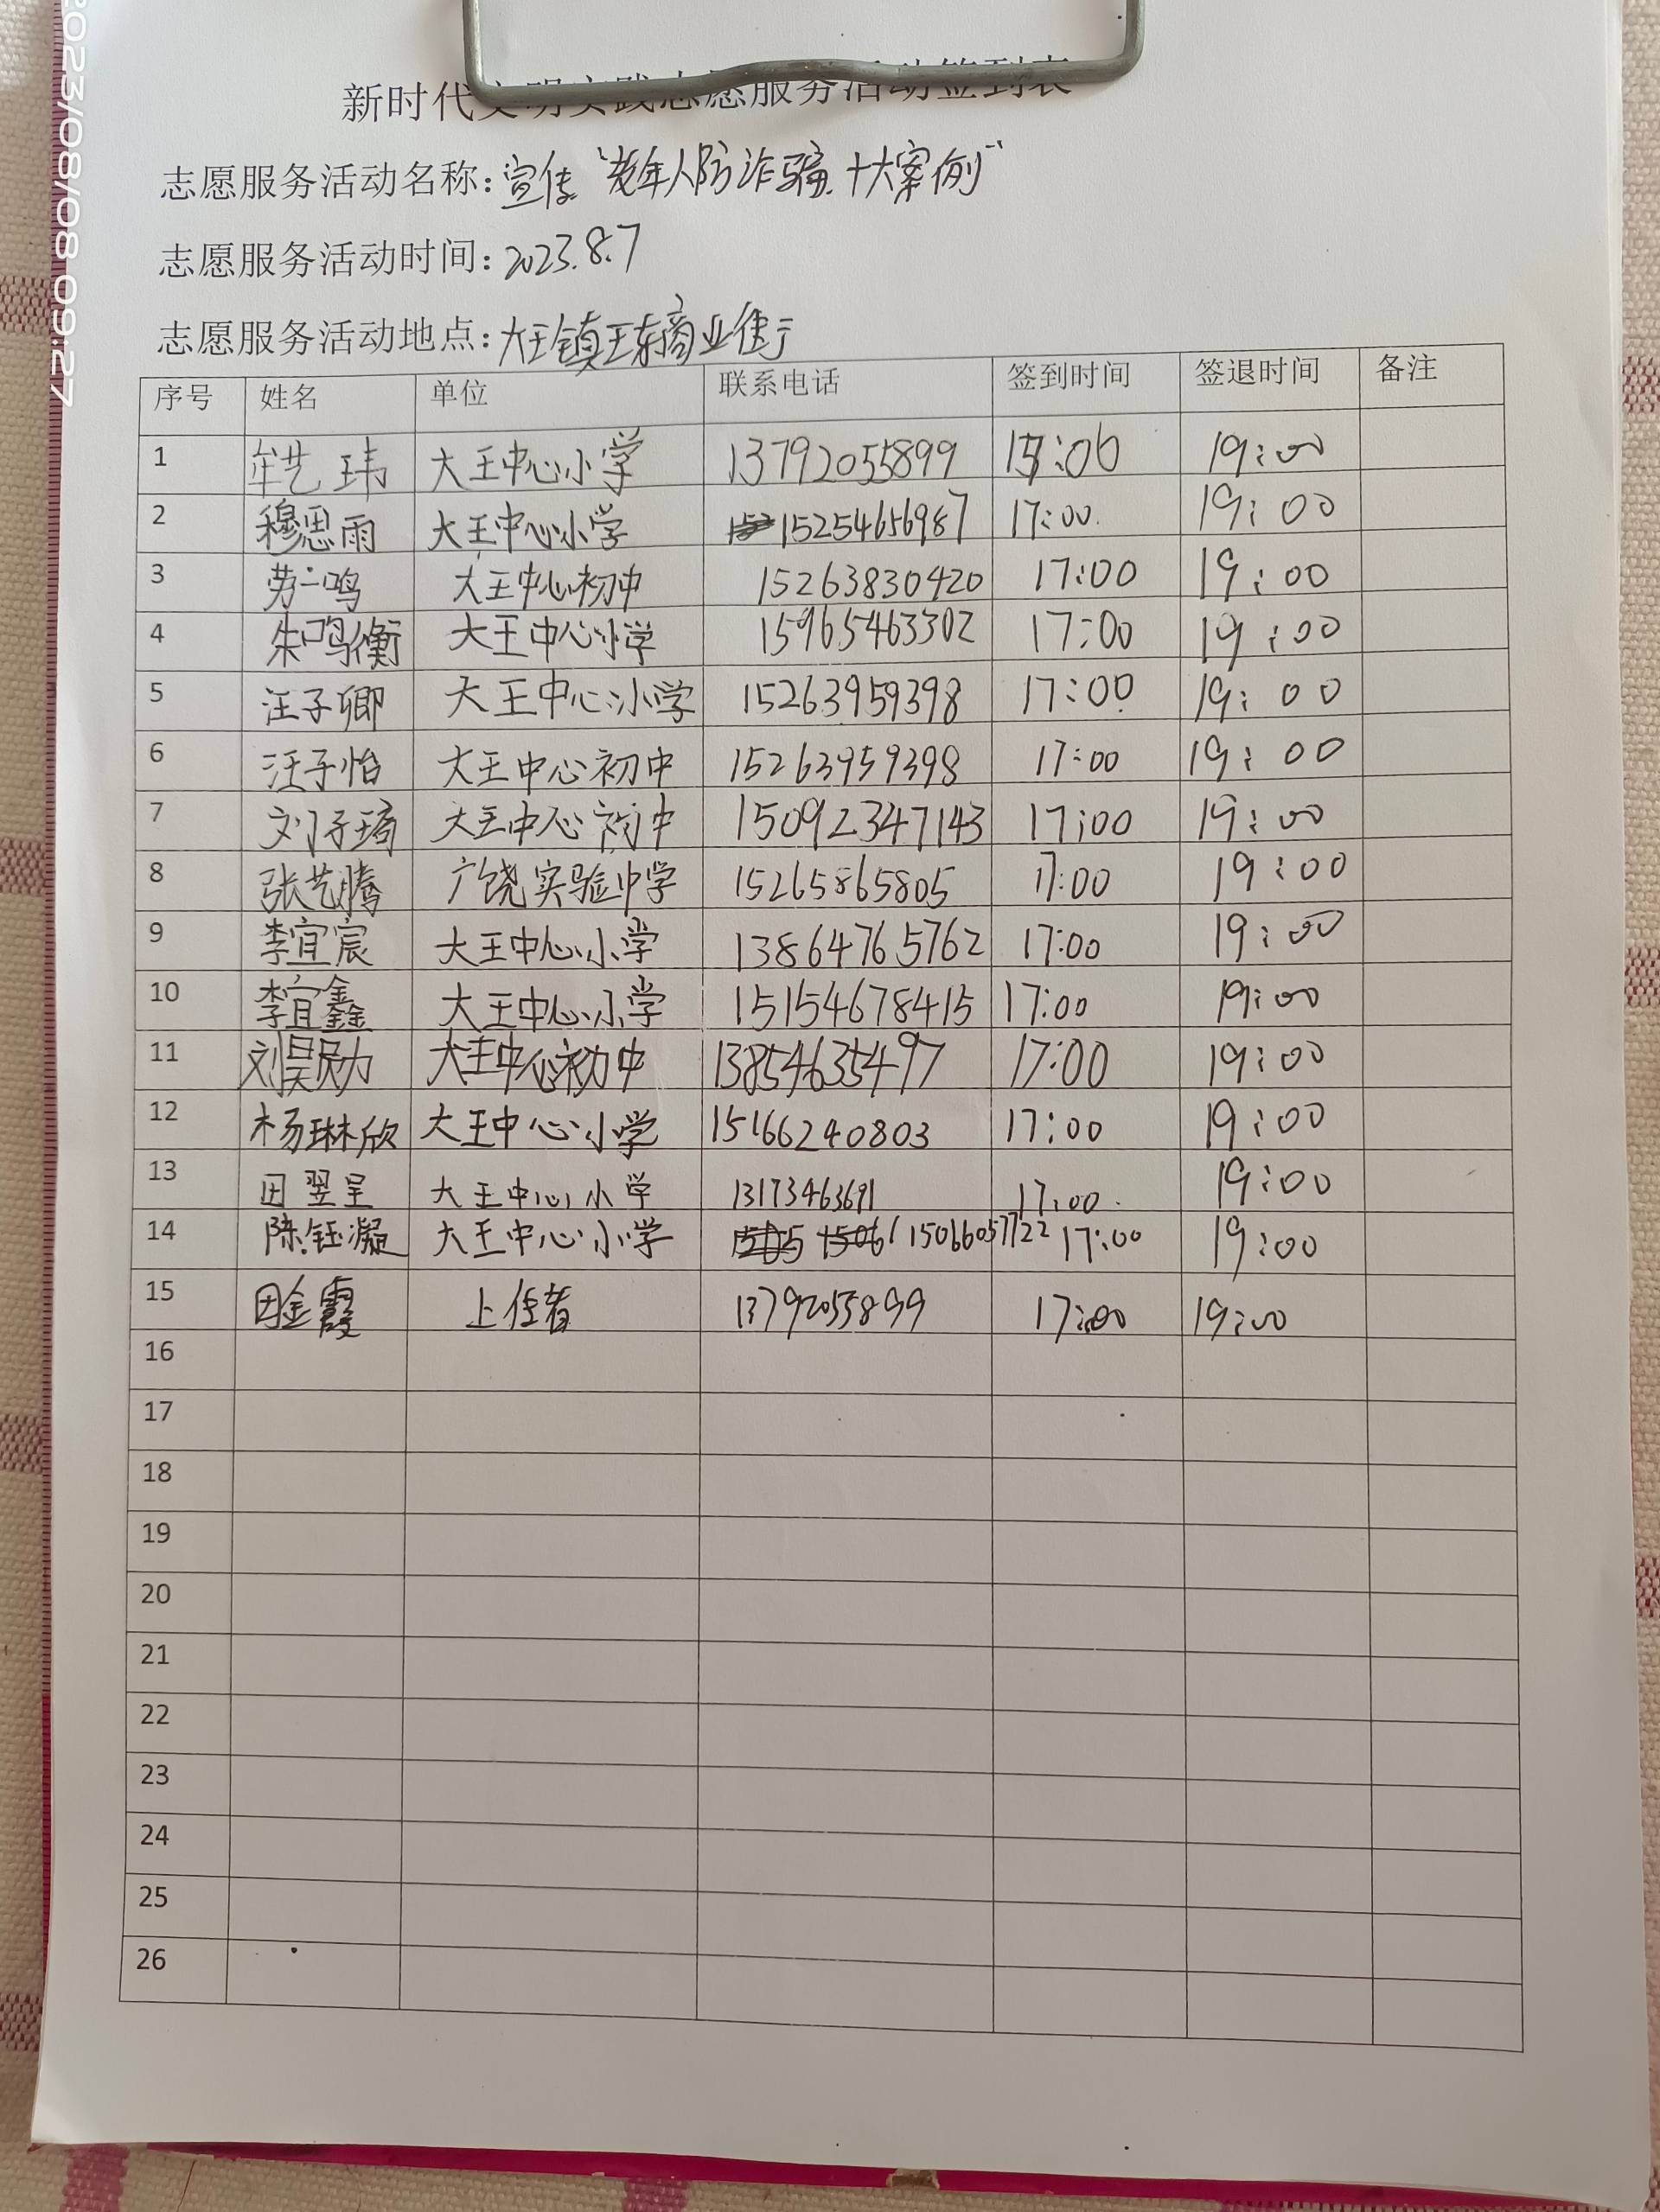 2023/08/08 09:27
新时代文明实践志愿服务活动签到表
志愿服务活动名称:宣传“老年人防诈骗十大案例”
志愿服务活动时间:2023.8.7
志愿服务活动地点:大王镇王东商业街
序号 姓名 单位 联系电话 签到时间 签退时间 备注
1 牟艺玮 大王中心小学 13792055899 17:00 19:00
2 穆思雨 大王中心小学 15254656987 17:00 19:00
3 劳一鸣 大王中心初中 15263830420 17:00 19:00
4 朱鸣衡 大王中心小学 15965463302 17:00 19:00
5 汪子卿 大王中心小学 15263959398 17:00 19:00
6 汪子怡 大王中心初中 15263959398 17:00 19:00
7 刘子琦 大王中心初中 15092347143 17:00 19:00
8 张艺腾 广饶实验中学 15265865805 17:00 19:00
9 李宜宸 大王中心小学 13864765762 17:00 19:00
10 李宜鑫 大王中心小学 15154678415 17:00 19:00
11 刘昊勋 大王中心初中 13854635497 17:00 19:00
12 杨琳欣 大王中心小学 15166240803 17:00 19:00
13 田翌呈 大王中心小学 13173463691 17:00 19:00
14 陈钰凝 大王中心小学 15066057722 17:00 19:00
15 田金霞 13792055899 17:00 19:00
16
17
18
19
20
21
22
23
24
25
26